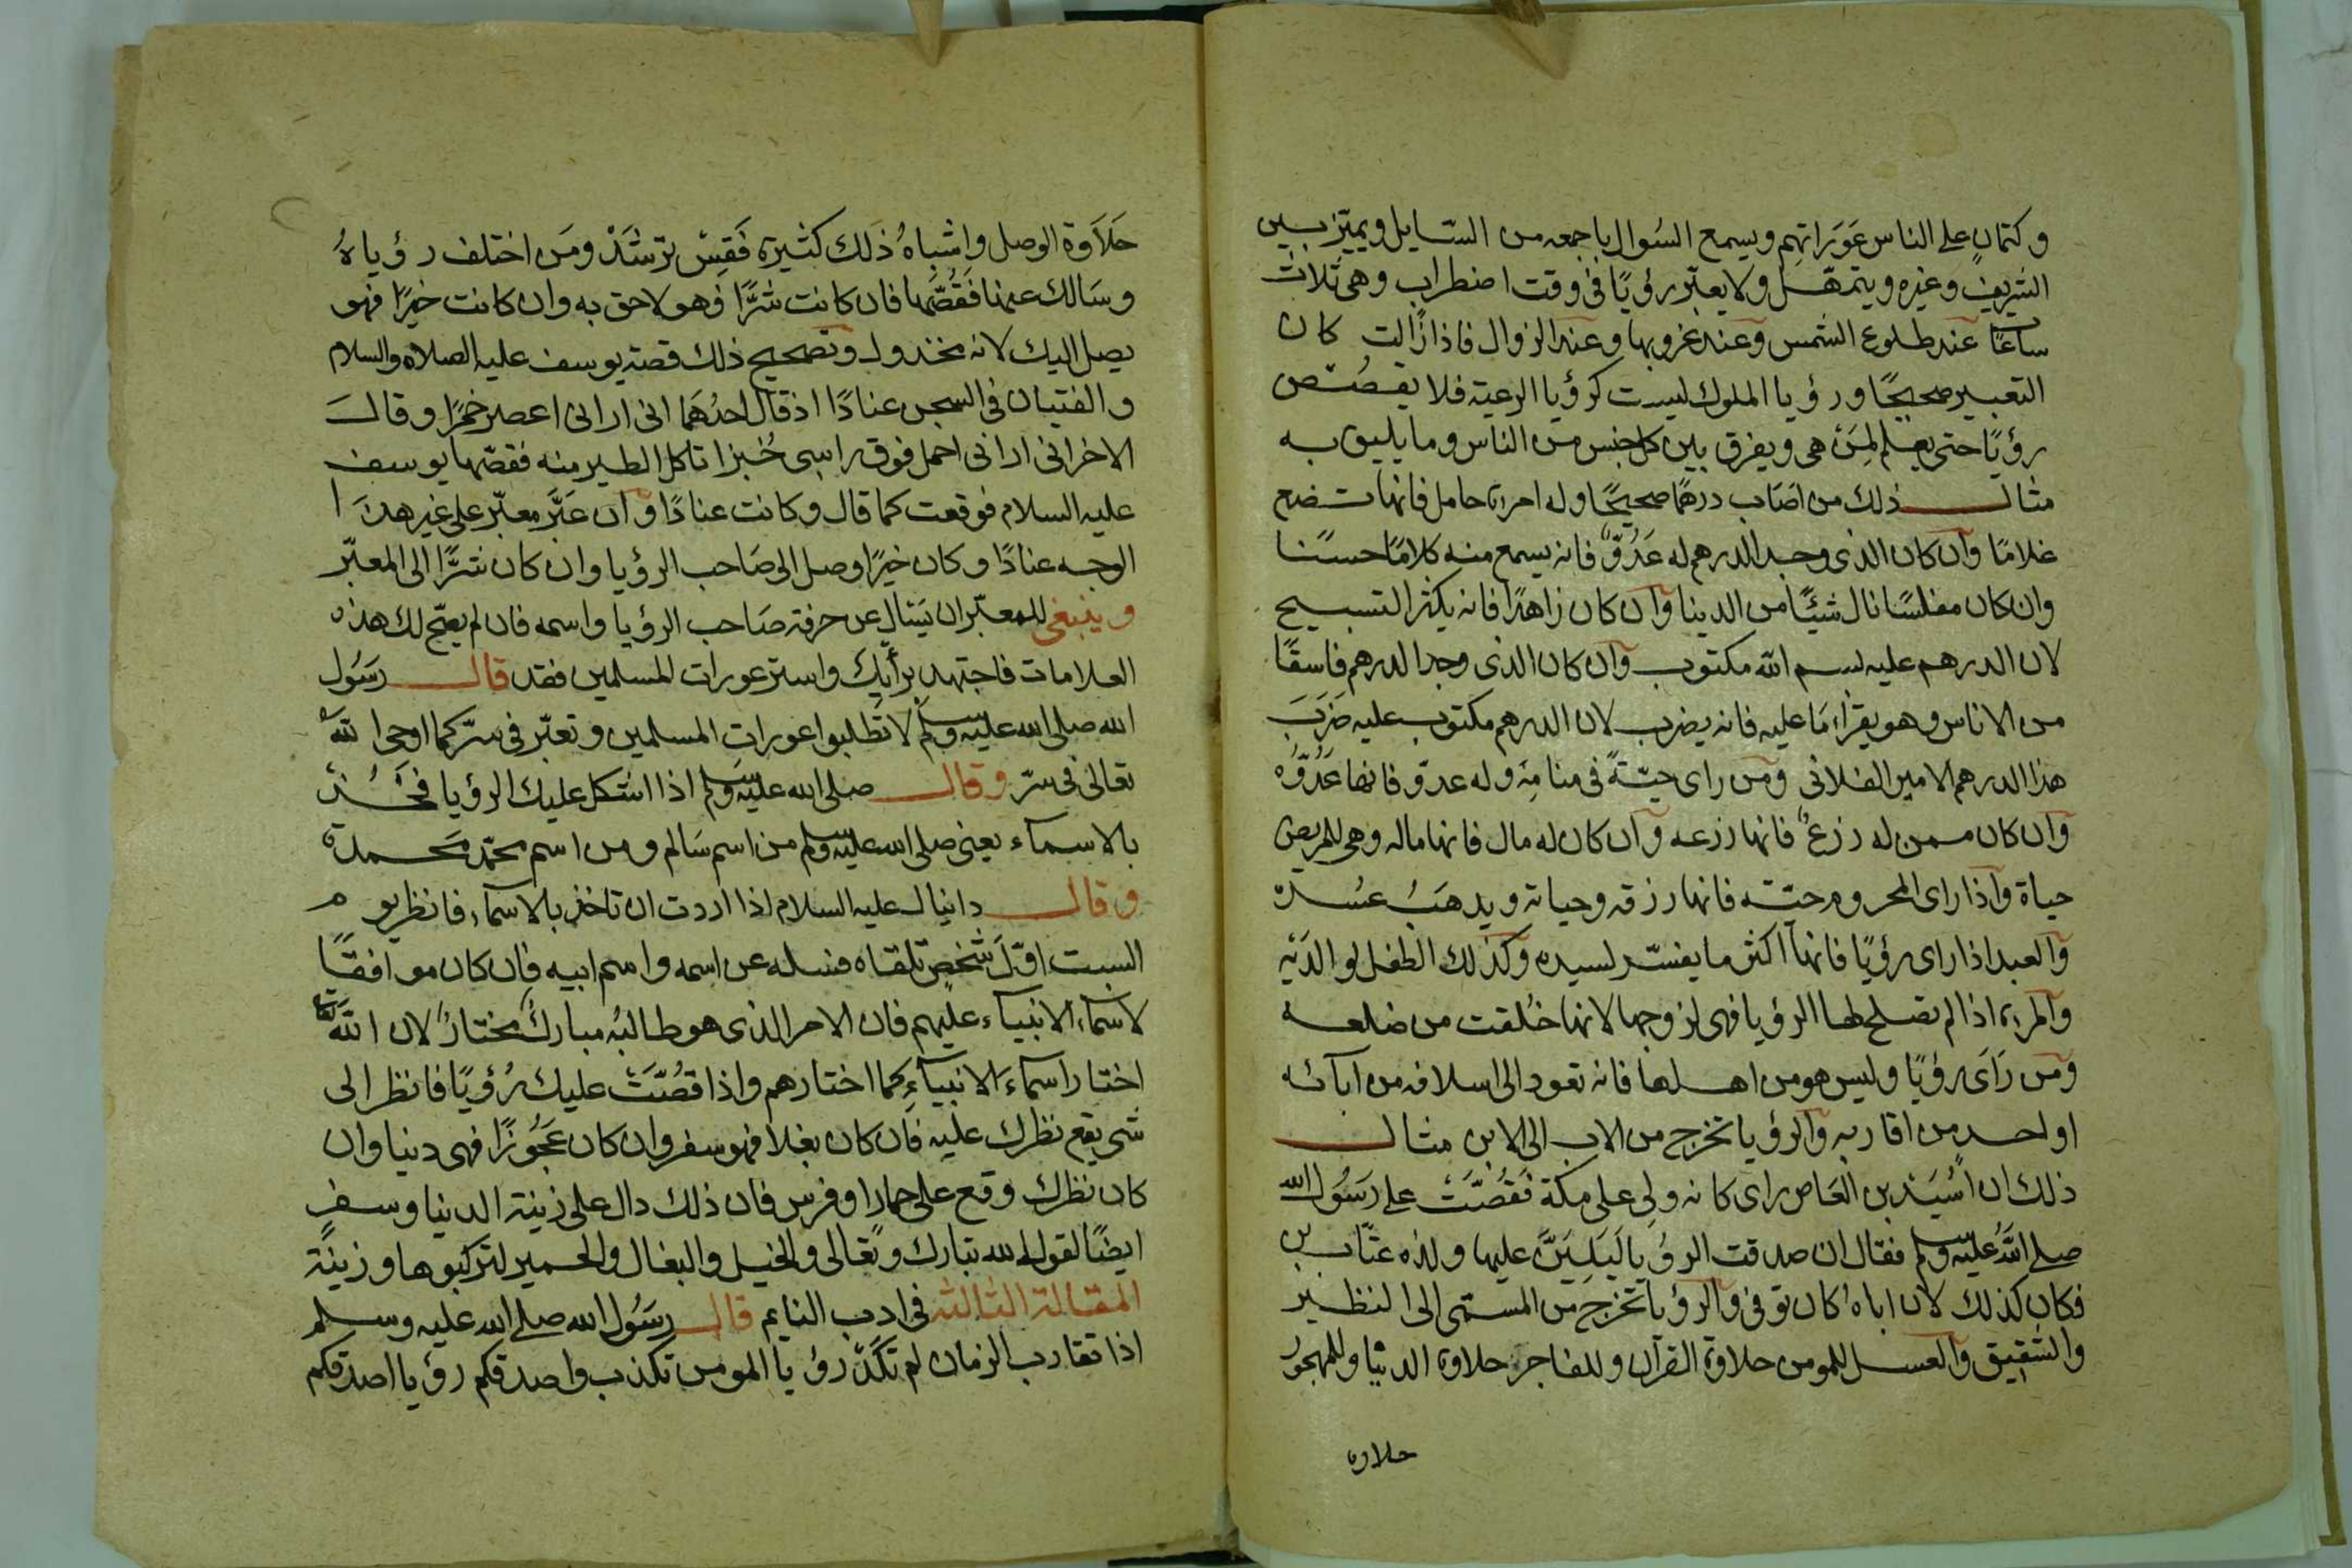 وكتمان على الناس عَوَراتهم ويسمع السُوال باجمعه من السّايل ويميّز بين
الشريف وغيره ويتمهّل ولا يعبّر رؤيًا فى وقت اضطراب وهى ثلاث
ساعات عند طلوع الشمس وعند غروبها وعند الزوال فاذا زالت كان
التعبير صحيحًا ورؤيا الملوك ليست كرؤيا الرعية فلا يقصُص
رؤيًا حتى يعلم لِمَن هى ويفرق بين كل جنس من الناس وما يليق به
مثال ذلك من اصَاب درهمًا صحيحًا وله امرءة حامل فانها تضع
غلامًا وان كان الذى وجد الدرهم له عَدُوٌّ فانه يسمع منه كلامًا حسنًا
وان كان مفلسًا نال شيئًا من الدينا وان كان زاهدًا فانه يكثر التسبيح
لان الدرهم عليه بسم الله مكتوب وان كان الذى وجد الدرهم فاسقًا
من الاناس وهو يقراء مَا عليه فانه يضرب لان الدرهم مكتوب عليه ضَرَبَ
هذا الدرهم الامير الفلانى ومن راى حيّةً فى منامِه وله عدوّ فانها عَدُوُّه
وان كان ممن له زرعٌ فانها زرعه وان كان له مال فانها ماله وهى للمريض
حياة واذا راى المحروم حيّته فانها رزقه وحياته ويدهَبُ عسُره
والعبد اذا راى رؤيًا فانها اكثر ما يفسّر لسيده وكذلك الطفل لوالدَيْه
والمرءة اذا لم تصلح لها الرؤيا فهى لزوجها لانها خُلقت من ضلعه
ومن رَآى رؤيًا وليس هو من اهلها فانه تعود الى اسلافه من ابآئه
او لحد من اقاربه والرؤيا تخرج من الاب الى الابن مثال
ذلك ان اُسَيَد بن العَاص راى كانه ولِى على مكة فَقُصَّتَ على رَسَوُل الله
صلى الله عليه وسلم فقال ان صدقت الرؤيا ليَلِيَنَّ عليها ولده عتّاب بن
فكان كذلك لان اباه كان توفى والرؤيا تخرج من المسمى الى النظير
والشقيق والعسل للمومن حلاوة القرآن وللفاجر حلاوة الدنيا وللمهجور
حلاوه
حَلَاَوة الوصل واشباهُ ذَلك كثيرة فَقِسْ ترشَدْ ومَن اختلف رؤياهُ
وسَالك عنها فَقُصَّها فان كانت شرًّا فهو لاحق به وان كانت خيرًا فهو
يصل اليك لانه مخذول وتصحيح ذلك قصة يوسف عليه الصلاه والسلام
والفتيان فى السجن عنادًا اذ قال احدُهمَا انى ارانى اعصر خمرًا وقالَ
الاخر انى ارانى احمل فوق راسى خُبزا تاكل الطير منه فقصّها يوسف
عليه السلام فوقعت كما قال وكانت عنادًا وان عَبَّرَ معبّر على غير هذَا
الوجه عنادًا وكان خيرًا وصل الى صَاحب الرؤيا وان كان شرًّا الى المعبّر
وينبغى للمعبّر ان يَسال عن حرفة صَاحب الرؤيا واسمه فان لم يصّح لك هذه
العلامات فاجتهد برأيك واستر عورات المسلمين فقد قال رسَوُل
الله صلى الله عليه وسلم لا تطلبوا عورات المسلمين وتعبّر فى سرّ كما اوحى الله
تعالى فى سرّ وقال صلى الله عليه وسلم اذا اشكل عليك الرؤيا فخُذ
بالاسماء يعنى صلى الله عليه وسلم من اسم سَالم ومن اسم محمّد محَمدة
وقال دانيال عليه السلام اذا اردت ان تاخذ بالاسماء فانظر يوم
السبت اوّلَ شخص تلقاه فسله عن اسمه واسم ابيه فان كان موافقًا
لاسماء الانبياء عليهم فان الامر الذى هو طالبُه مباركٌ مختارٌ لان الله
اختار اسماءَ الانبياءِ كما اختارهم واذا قصُّتَ عليك رُؤيًا فانظر الى
شى يقع نظرك عليه فان كان بغلا فهو سفر وان كان عَجُوزًا فهى دنيا وان
كان نظرك وقع على حمار او فرس فان ذلك دال على زينة الدينا وسفر
ايضًا لقول الله تبارك وتعَالى والخيل والبغال والحمير لتركبوها وزينة
المقالة الثالثه فى ادب النايم قال رسَوُل الله صلى الله عليه وسلم
اذا تقارب الزمان لم تكَدْ رؤيا المومن تكذب واصدقكم رؤيا اصدقكم